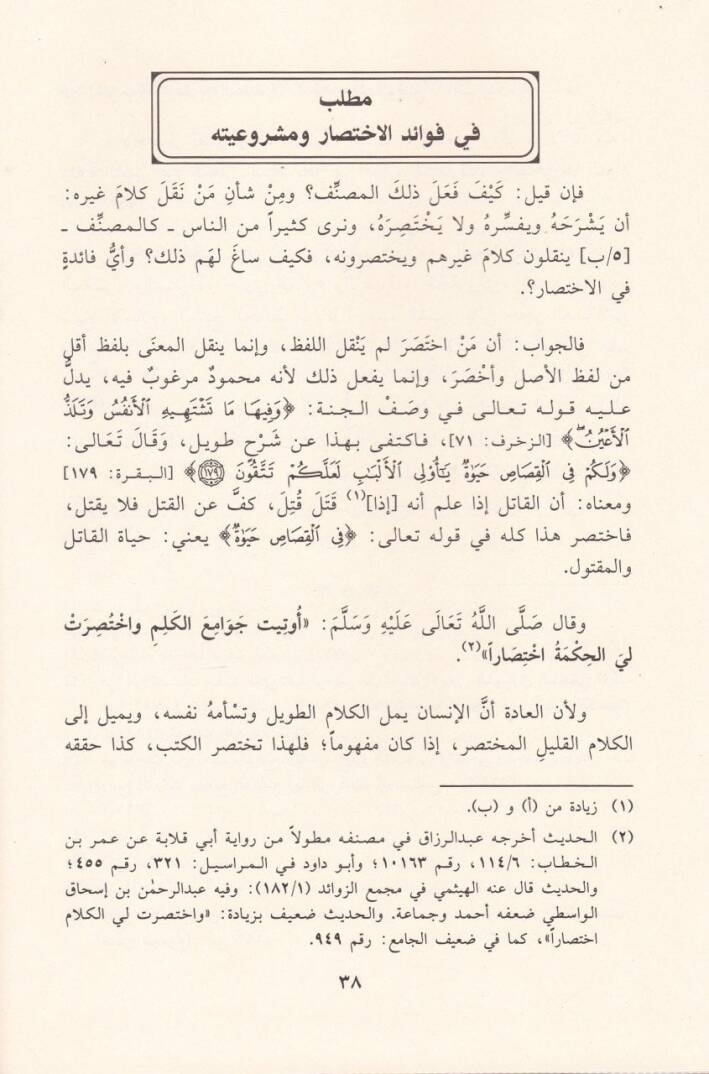 مطلب
في فوائد الاختصار ومشروعيته
فإن قيل: كَيْفَ فَعَلَ ذلكَ المصنِّف؟ ومِنْ شأنِ مَنْ نَقَلَ كلامَ غيره:
أن يَشْرَحَهُ ويفسِّرهُ ولا يَخْتَصِرَهُ، ونرى كثيراً من الناس ـ كالمصنِّف ـ
[٥/ب] ينقلون كلامَ غيرهم ويختصرونه، فكيف ساغَ لهَم ذلك؟ وأيُّ فائدةٍ
في الاختصار؟.
فالجواب: أن مَنْ اختَصَرَ لم يَنْقل اللفظ، وإنما ينقل المعنَى بلفظ أقل
من لفظ الأصل وأخْصَرَ، وإنما يفعل ذلك لأنه محمودٌ مرغوبٌ فيه، يدلُّ
عليه قوله تعالى في وصَفْ الجنة: ﴿وَفِيهَا مَا تَشْتَهِيهِ ٱلْأَنفُسُ وَتَلَذُّ
ٱلْأَعْيُنُۖ﴾ [الزخرف: ٧١]، فاكتفى بهذا عن شَرْح طويل، وَقَالَ تَعَالى:
﴿وَلَكُمْ فِي ٱلْقِصَاصِ حَيَوٰةٌ يَٰٓأُو۟لِي ٱلْأَلْبَٰبِ لَعَلَّكُمْ تَتَّقُونَ ۝١٧٩﴾ [البقرة: ١٧٩]
ومعناه: أن القاتل إذا علم أنه [إذا](١) قَتَلَ قُتِلَ، كفَّ عن القتل فلا يقتل،
فاختصر هذا كله في قوله تعالى: ﴿فِي ٱلْقِصَاصِ حَيَوٰةٌ﴾ يعني: حياة القاتل
والمقتول.
وقال صَلَّى اللَّهُ تَعَالَى عَلَيْهِ وَسَلَّمَ: «أُوتِيت جَوَامِعَ الكَلِمِ واخْتُصِرَتْ
ليَ الحِكْمَةُ اخْتِصَاراً»(٢).
ولأن العادة أنَّ الإنسان يمل الكلام الطويل وتسْأمهُ نفسه، ويميل إلى
الكلام القليلِ المختصر، إذا كان مفهوماً؛ فلهذا تختصر الكتب، كذا حققه
(١) زيادة من (أ) و (ب).
(٢) الحديث أخرجه عبدالرزاق في مصنفه مطولاً من رواية أبي قلابة عن عمر بن
الخطاب: ١١٤/٦، رقم ١٠١٦٣؛ وأبو داود في المراسيل: ٣٢١، رقم ٤٥٥؛
والحديث قال عنه الهيثمي في مجمع الزوائد (١٨٢/١): وفيه عبدالرحمٰن بن إسحاق
الواسطي ضعفه أحمد وجماعة. والحديث ضعيف بزيادة: «واختصرت لي الكلام
اختصاراً»، كما في ضعيف الجامع: رقم ٩٤٩.
٣٨